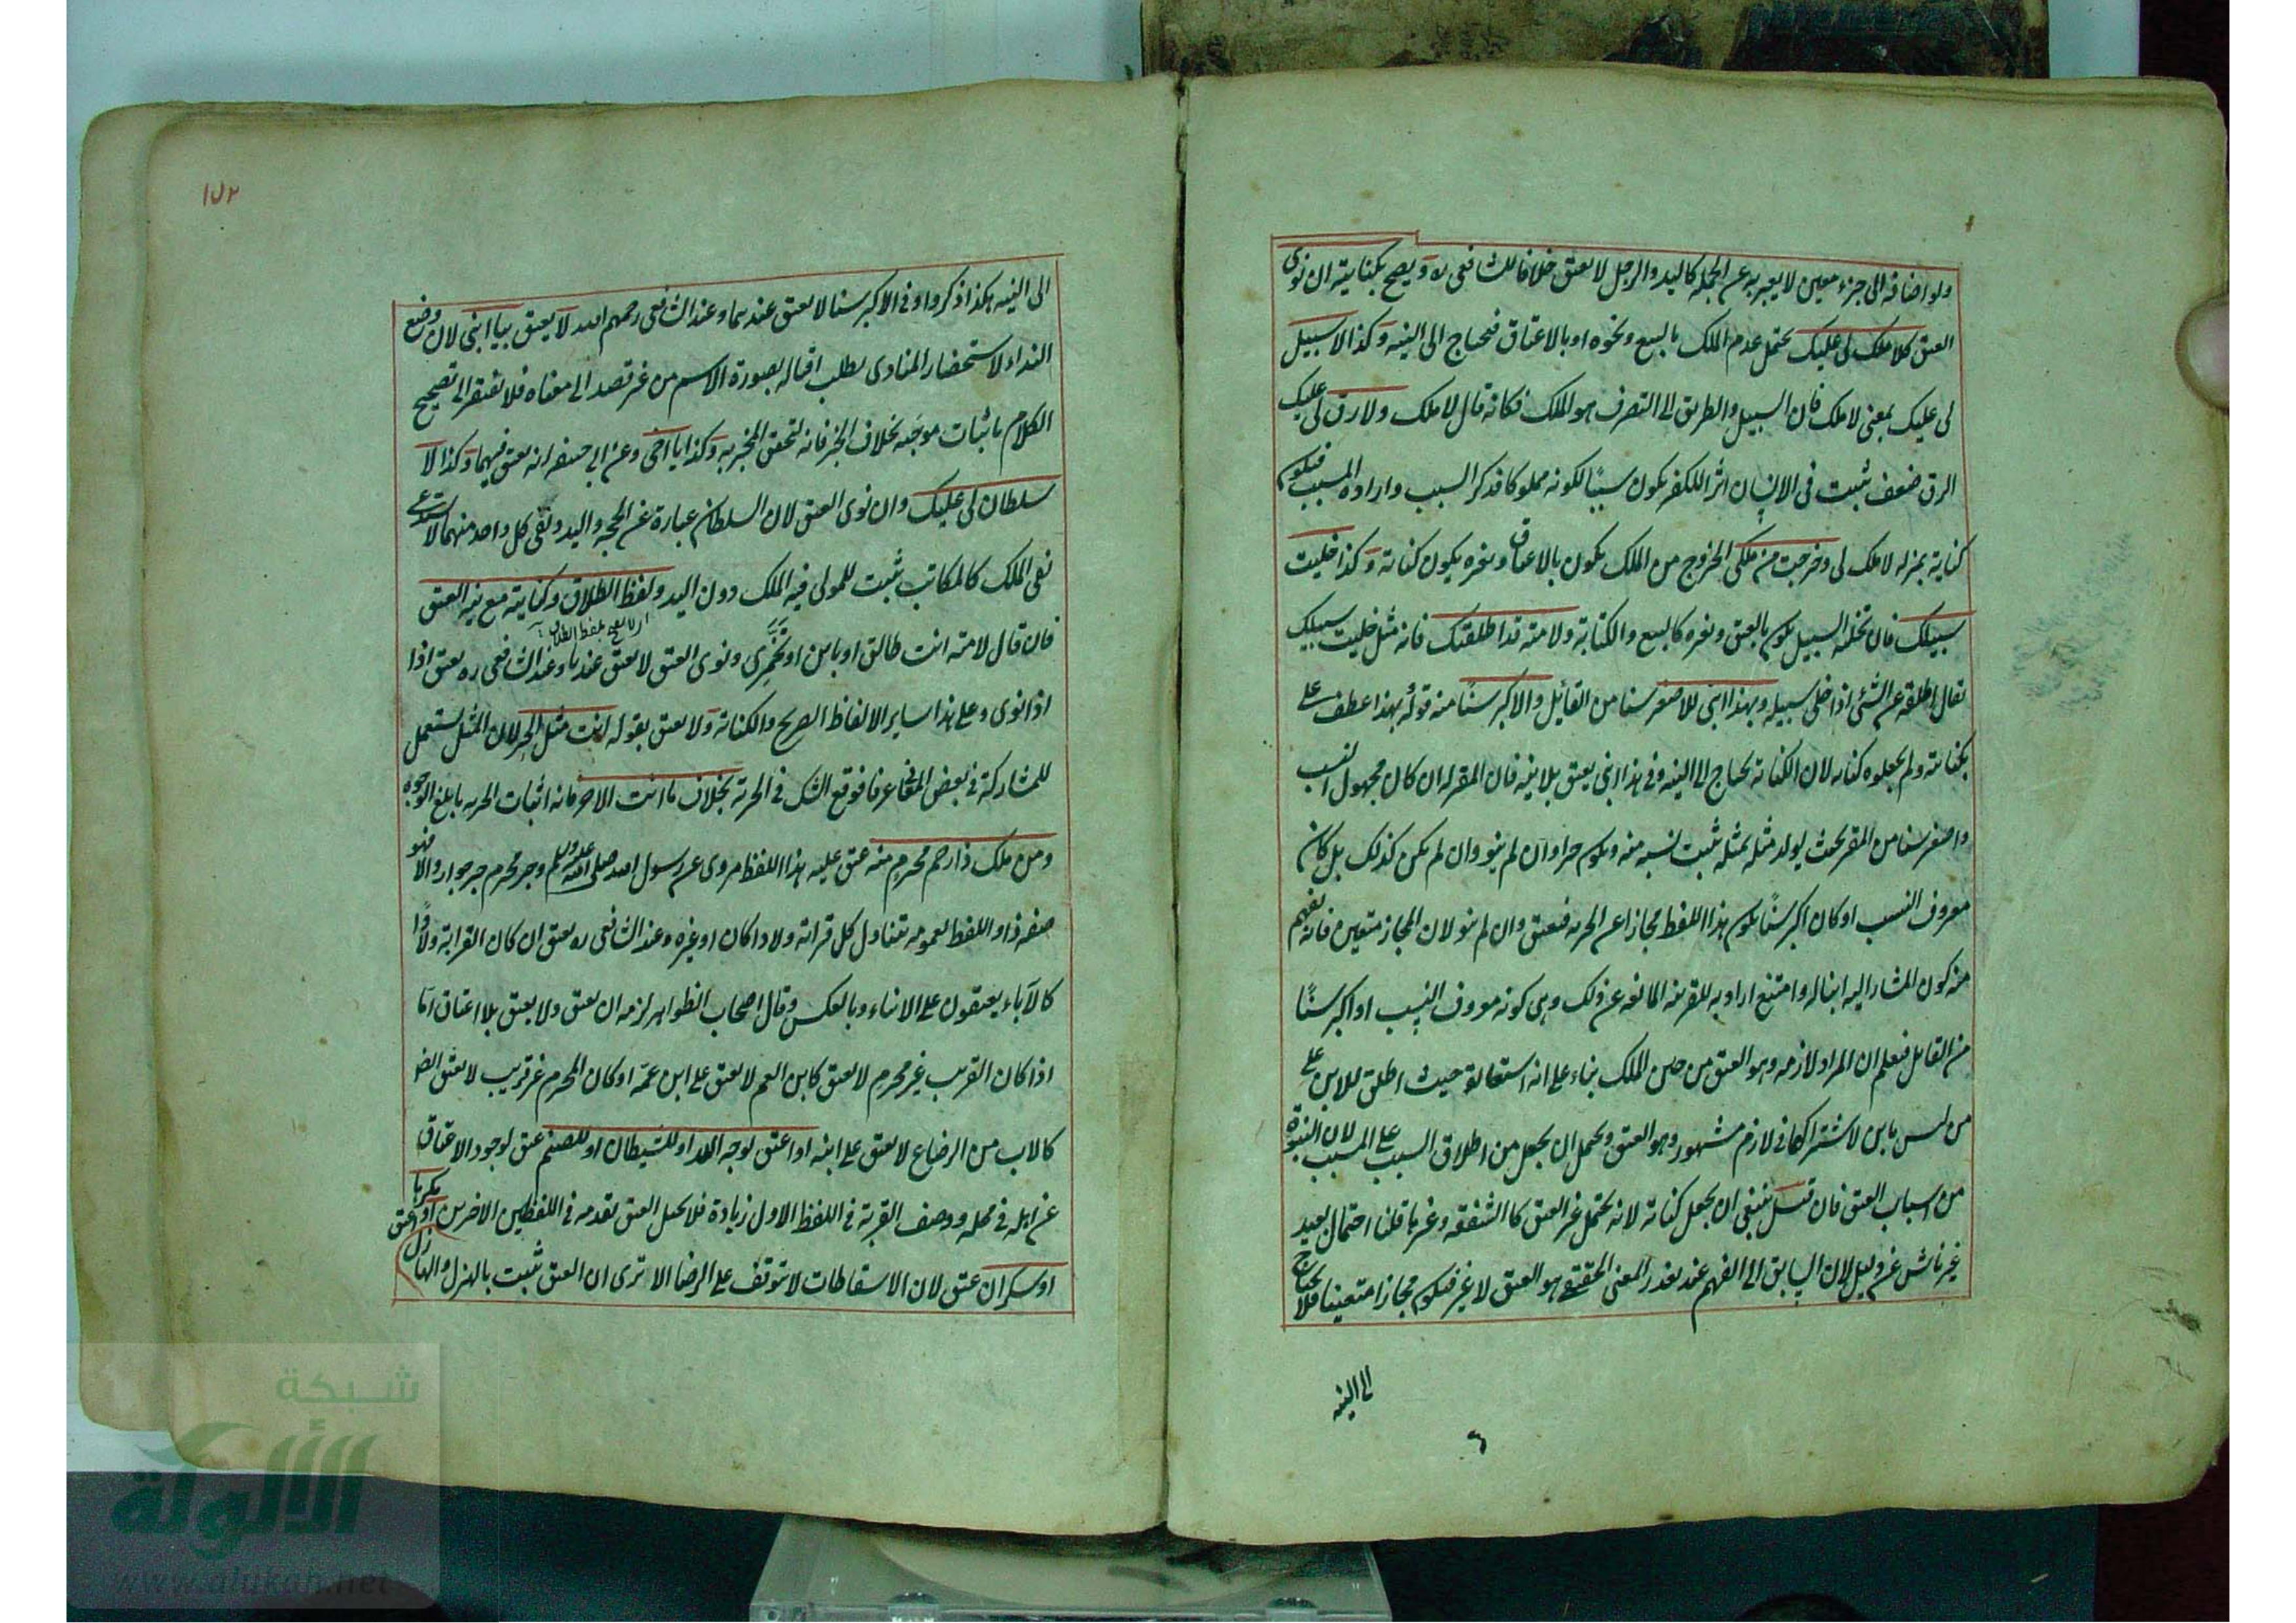 ولو اضافه الى جزء معين لا يعبر به عن الجمله كاليد والرجل لا يعتق خلافا للشافعى ره ويصح بكنايته ان نوى
العتق كلا ملك لى عليك يحتمل عدم الملك بالبيع ونحوه او بالاعتاق فيحتاج الى النيه وكذا لا سبيل
لى عليك بمعنى لا ملك فان السبيل والطريق الى التصرف هو الملك فكانه قال لا ملك ولا رق لى عليك
الرق ضعف يثبت فى الانسان اثر الكفر يكون سببًا لكونه مملوكا فذكر السبب واراده المسبب فيكون
كناية بمنزله لا ملك لى وخرجت من ملكى الخروج من الملك يكون بالاعتاق وبغيره يكون كناية وكذا خليت
سبيلك فان تخليه السبيل يكون بالعتق وبغيره كالبيع والكتابة ولامته قد اطلقتك فانه مثل خليت سبيلك
يقال اطلقه عن الشئ اذا خلى سبيله وبهذا ابنى للاصغر سنا من القائل والاكبر سنًا منه قوله بهذا عطف على
بكنايته ولم يجعلوه كنايه لان الكناية يحتاج الى النيه وفى هذا ابنى يعتق بلا نيه فان المقر له ان كان مجهول النسب
واصغر سنا من المقر بحيث يولد مثله بمثله ثبت نسبه منه ويكون حرا وان لم ينو وان لم يكن كذلك بل كان
معروف النسب او كان اكبر سنًا يكون هذا اللفظ مجازا عن الحريه فيعتق وان لم ينو لان المجاز متعين فانه يفهم
منه كون المشار اليه ابنا له وامتنع ارادته للقرينه المانعه عن ذلك وهى كونه معروف النسب او اكبر سنًا
من القائل فيعلم ان المراد لازمه وهو العتق من حين الملك بناء على انه استعارة حيث اطلق الابن على
من ليس بابن لاشتراكهما فى لازم مشهور وهو العتق ويحتمل ان يجعل من اطلاق السبب على المسبب لان البنوة
من اسباب العتق فان قيل ينبغى ان يجعل كناية لانه يحتمل غير العتق كالشفقه وغيرها قلنا احتمال بعيد
غير ناش عن دليل لان السابق الى الفهم عند تعذر المعنى الحقيقى هو العتق لا غير فيكون مجازا متعينا فلا يحتاج
الى النيه
١٥٢
الى النيه هكذا ذكروا وفى الاكبر سنا لا يعتق عندهما وعند الشافعى رحمهم الله لا يعتق بيا ابنى لان وضع
النداء لاستحضار المنادى بطلب اقباله بصورة الاسم من غير قصد الى معناه فلا يفتقر الى تصحيح
الكلام باثبات موجبه بخلاف الخبر فانه لتحقق المخبر به وكذا يا اخى وعن ابى حنيفه انه يعتق فيهما وكذا لا
سلطان لى عليك وان نوى العتق لان السلطان عبارة عن الحجه واليد ونفى كل واحد منهما لا يستدعى
نفى الملك كالمكاتب يثبت للمولى فيه الملك دون اليد ولفظ الطلاق وكنايته مع نيه العتق
اى لا يصح بلفظ الطلاق
فان قال لامته انت طالق او باين او تخمرى ونوى العتق لا يعتق عندنا وعند الشافعى ره يعتق اذا
اذا نوى وعلى هذا ساير الالفاظ الصريح والكناية ولا يعتق بقوله انت مثل الحر لان المثل يستعمل
للمشاركة فى بعض المعانى عرفا فوقع الشك فى الحرية بخلاف ما انت الا حر فانه اثبات الحريه بابلغ الوجوه
ومن ملك ذا رحم محرم منه عتق عليه هذا اللفظ مروى عن رسول الله صلى الله عليه وسلم وجر محرم جر جوار والا فهو
صفه ذا واللفظ بعمومه يتناول كل قرابة ولادا كان او غيره وعند الشافعى ره يعتق ان كان القرابة ولادًا
كالآباء يعتقون على الابناء وبالعكس وقال اصحاب الظواهر لزمه ان يعتق ولا يعتق بلا اعتاق اما
اذا كان القريب غير محرم لا يعتق كابن العم لا يعتق على ابن عمه او كان المحرم غير قريب لا يعتق ايضا
كالاب من الرضاع لا يعتق على ابنه او اعتق لوجه الله او للشيطان او للصنم عتق لوجود الاعتاق
عن اهله فى محله ووصف القربة فى اللفظ الاول زيادة فلا يخل العتق بعدمه فى اللفظين الاخرين او اعتق مكرها
او سكران عتق لان الاسقاطات لا يتوقف على الرضا الا ترى ان العتق يثبت بالهزل والهازل
شبكة
الألوكة
www.alukah.net